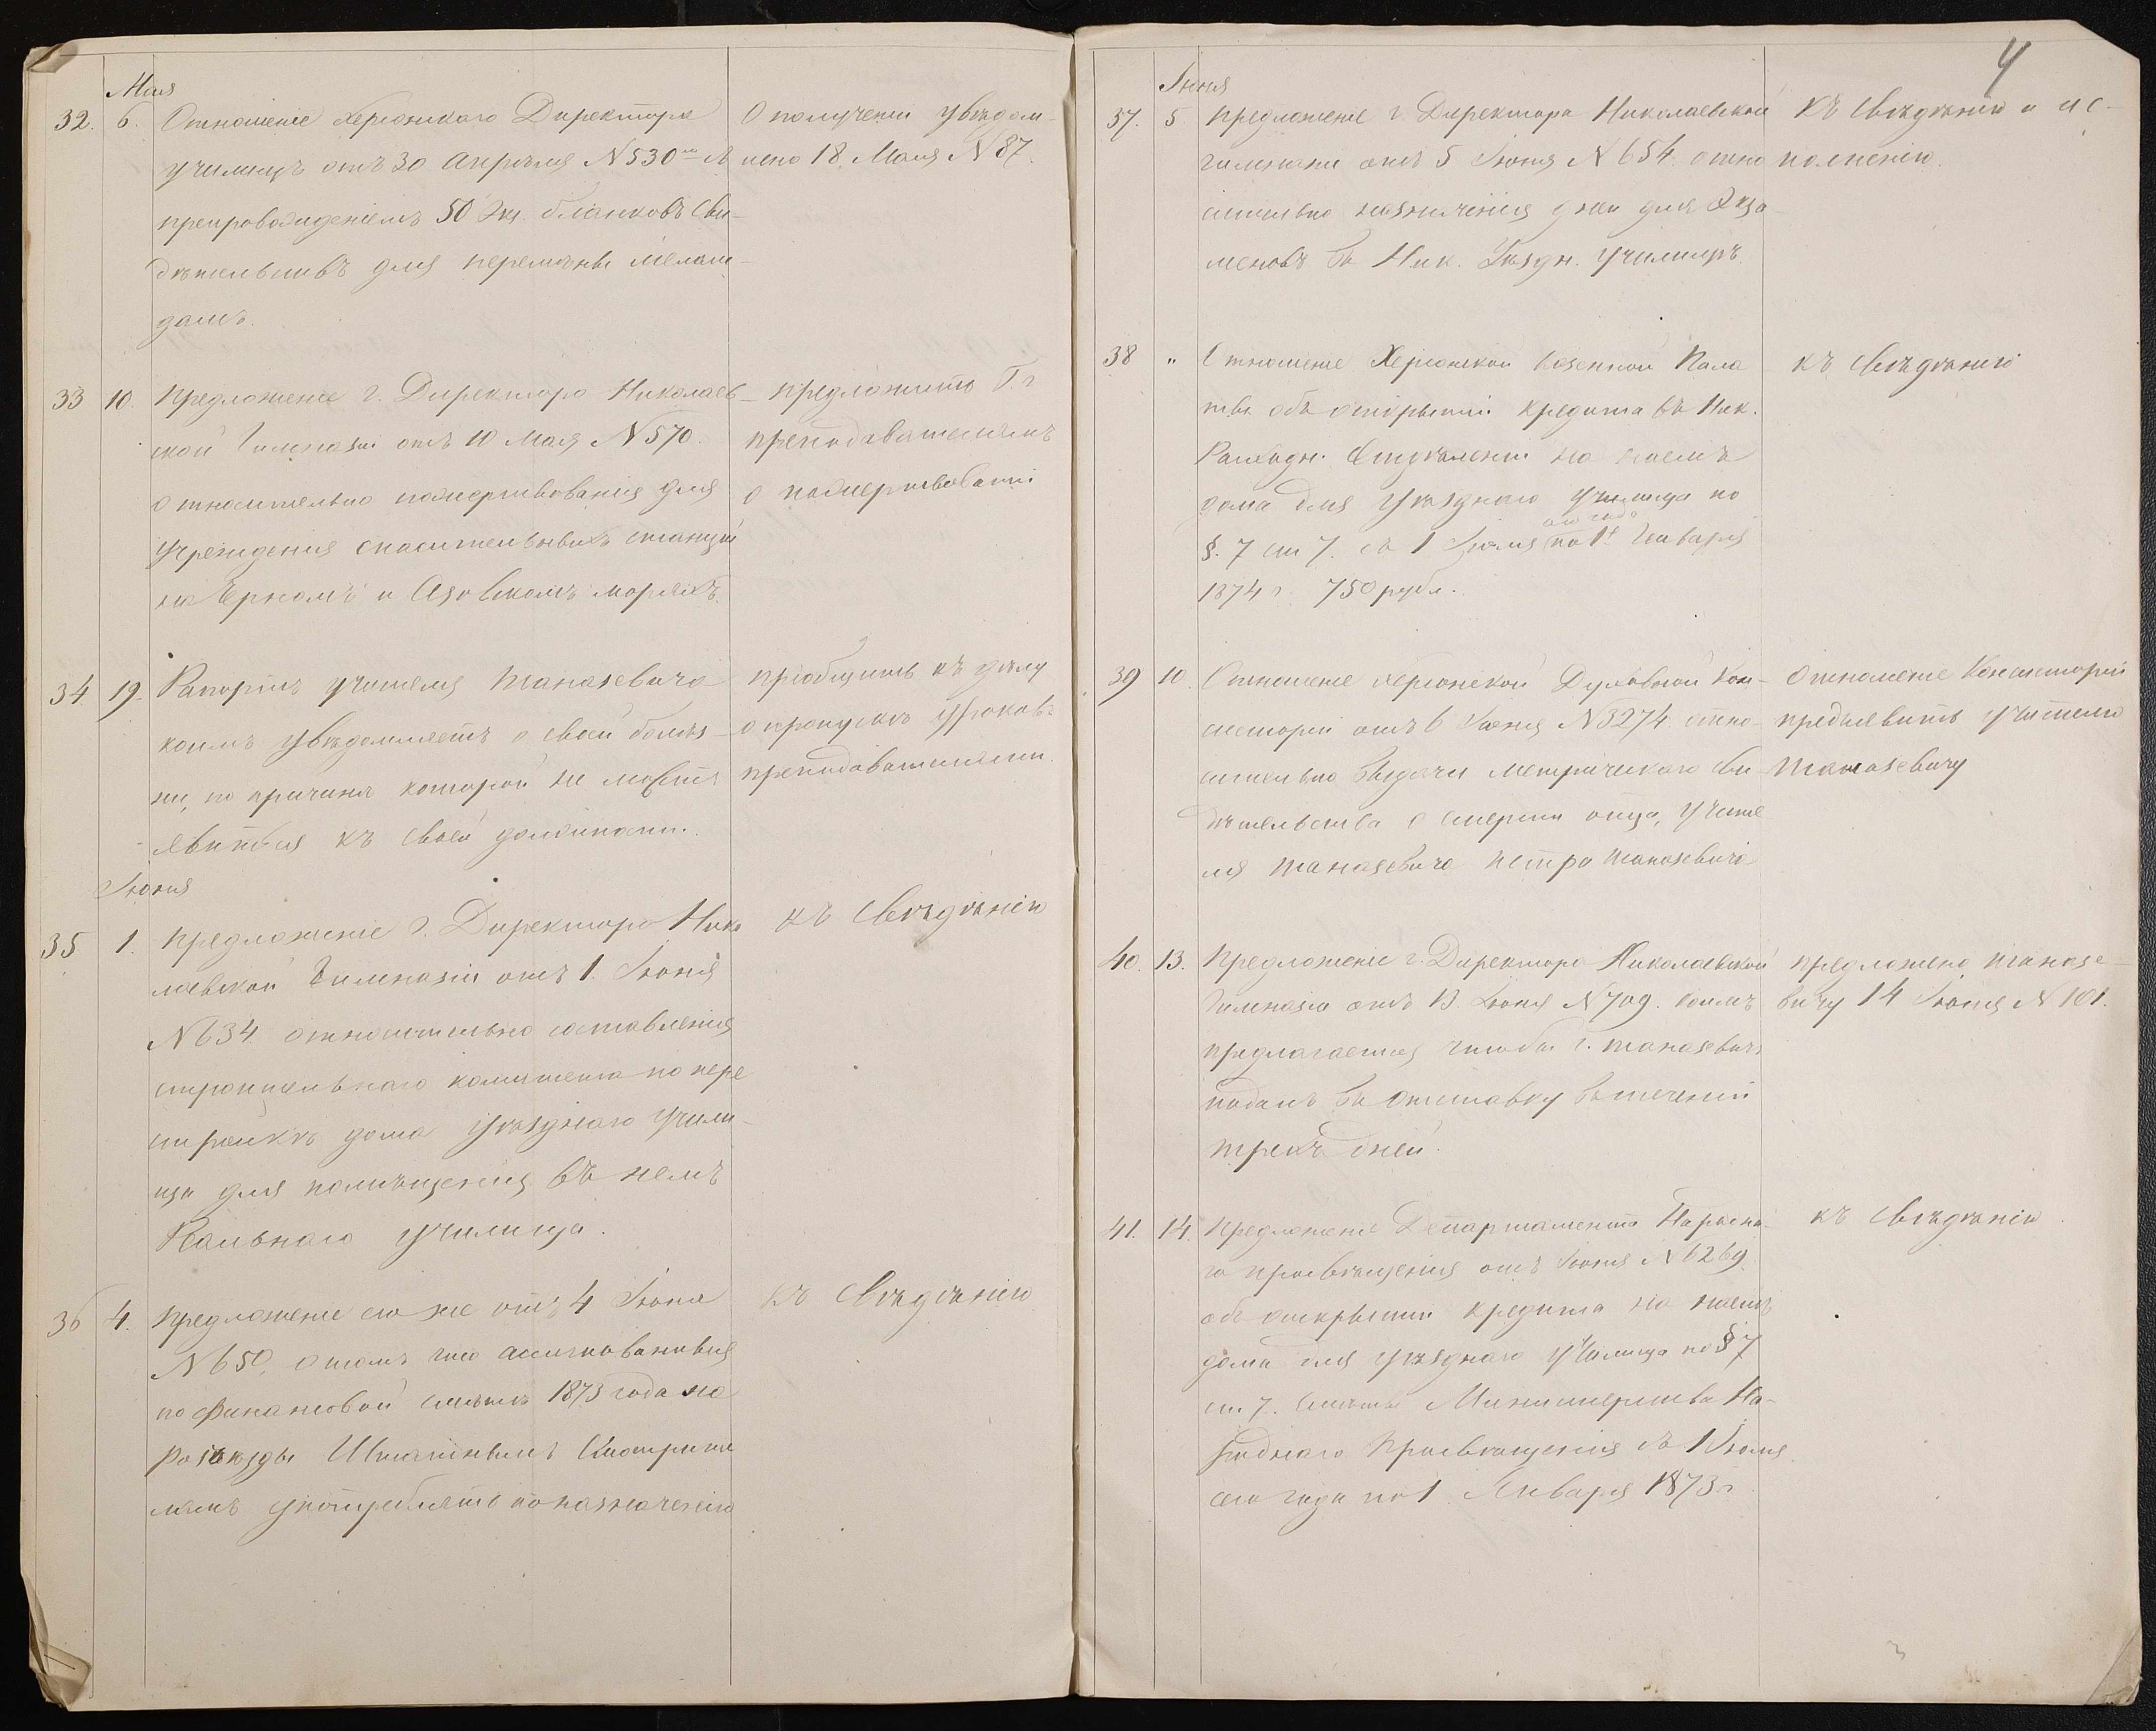 Мая
32. 6. Отношеніе Херсонскаго Директора
училищъ отъ 30 Апрѣля N 530
препровожденіемъ 50 Экз. бланковъ Сви-
дѣтельствъ для перемѣны
дамъ.
О полученіи увѣдом-
лено 18 Мая N 87.
33 10. Предложеніе г. Директора Николаев-
ской Гимназіи отъ 10 Мая N 570.
относительно пожертвованія для
учрежденія спасительныхъ станцій
на Черномъ и Азовскомъ моряхъ.
предложить Г.г
преподавателямъ
о пожертвованіи
34 19. Рапортъ учителя Танасевича
коимъ увѣдомляетъ о своей болѣз-
ни, по причинѣ которой не можетъ
явиться къ своей должности.
пріобщить къ дѣлу
о пропускѣ уроковъ
преподавателями.
Іюня
35 1. Предложеніе г. Директора Нико
лаевской Гимназіи отъ 1. Іюня
N 634 относительно составленія
строительнаго комитета по пере
стройкѣ дома уѣзднаго учили-
ща для помѣщенія въ немъ
Реальнаго училища.
къ Свѣдѣнію
36 4. Предложеніе его же отъ 4 Іюня
N 650, о томъ что ассигнованныя
по финансовой смѣтѣ 1873 года на
разъѣзды Штатнымъ Смотрите
лямъ употреблять по назначенію
къ Свѣдѣнію
4
Іюня
37. 5 Предложеніе г. Директора Николаевской
гимназіи отъ 5 Іюня N 654. отно
сительно назначенія дней для Экза
меновъ въ Ник. Уѣздн. Училищѣ.
Къ Свѣдѣнію и ис-
полненію.
38 " Отношеніе Херсонской Казенной Пала
ты объ открытіи кредита въ Ник.
Расходн. Отдѣленіи на наемъ
дома для Уѣзднаго Училища по
§. 7 ст 7. съ 1 Іюля по 1е Генваря
1874 г. 750 рубл.
къ Свѣдѣнію
39 10. Отношеніе Херсонской Духовной Кон-
систоріи отъ 6 Іюня N 3274 отно-
сительно выдачи метрическаго сви-
дѣтельства о смерти отца, учите
ля Танасевича Петра Танасевича
Отношеніе Консисторіи
предъявить учителю
Танасевичу
40. 13. Предложеніе г. Директора Николаевской
Гимназіи отъ 13. Іюня N 709. коимъ
предлагается чтобы г. Танасевичъ
подалъ въ отставку въ теченіи
трехъ дней.
предложено Танасе-
вичу 14 Іюня N 101.
41. 14. Предложеніе Департамента Народна-
го просвѣщенія отъ Іюня N 6269
объ открытіи кредита на наемъ
дома для уѣзднаго Училища по § 7
ст 7. Смѣты Министерства На-
роднаго Просвѣщенія съ 1 Іюля
сего года по 1 Января 1873 г
къ Свѣдѣнію